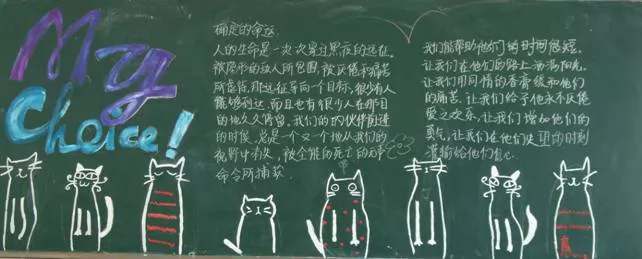 My
Choice!
确定的命运
人的生命是一次次穿过黑夜的远征,
被隐形的敌人所包围,被疲倦和痛苦
所虐待,那远征导向一个目标,很少有人
能够到达,而且也有很少人在那目
的地久久停留。我们的伙伴前进
的时候,总是一个又一个地从我们的
视野中消失,被全能的死亡的无声
命令所捕获
我们能帮助他们的时间很短,
让我们在他们的路上洒满阳光,
让我们用同情的香膏缓和他们
的痛苦,让我们给予他永不厌倦
爱之欢乐,让我们增加他们的
勇气,让我们在他们失望的时刻
灌输给他们信心